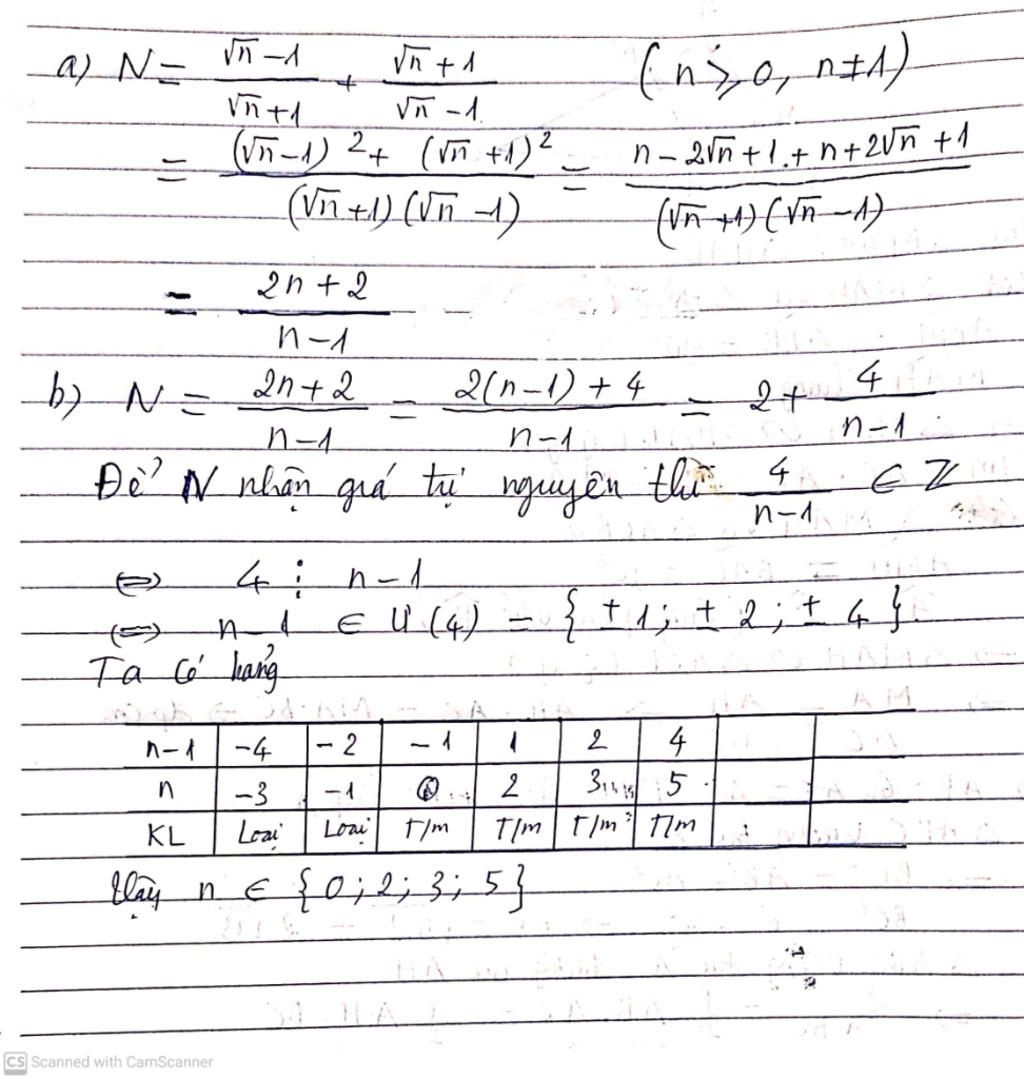 a) N = (√n − 1)/(√n + 1) + (√n + 1)/(√n − 1) (n ≥ 0, n ≠ 1)
= ((√n − 1)² + (√n + 1)²)/((√n + 1)(√n − 1)) = (n − 2√n + 1 + n + 2√n + 1)/((√n + 1)(√n − 1))
= (2n + 2)/(n − 1)
b) N = (2n + 2)/(n − 1) = (2(n − 1) + 4)/(n − 1) = 2 + 4/(n − 1)
Để N nhận giá trị nguyên thì 4/(n − 1) ∈ Z
⇔ 4 ⋮ n − 1
⇔ n − 1 ∈ Ư(4) = {±1; ±2; ±4}
Ta có bảng
n−1 −4 −2 −1 1 2 4
n −3 −1 0 2 3 5
KL Loại Loại T/m T/m T/m T/m
Vậy n ∈ {0; 2; 3; 5}
CS Scanned with CamScanner